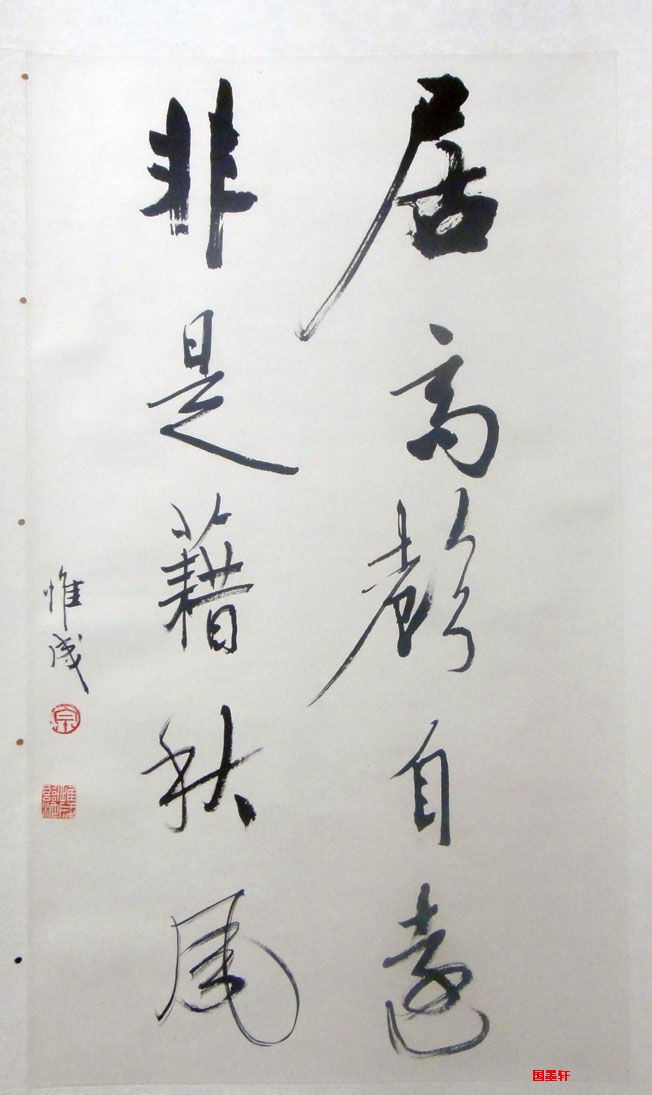 居高聲自遠
非是藉秋風
惟成
国墨轩